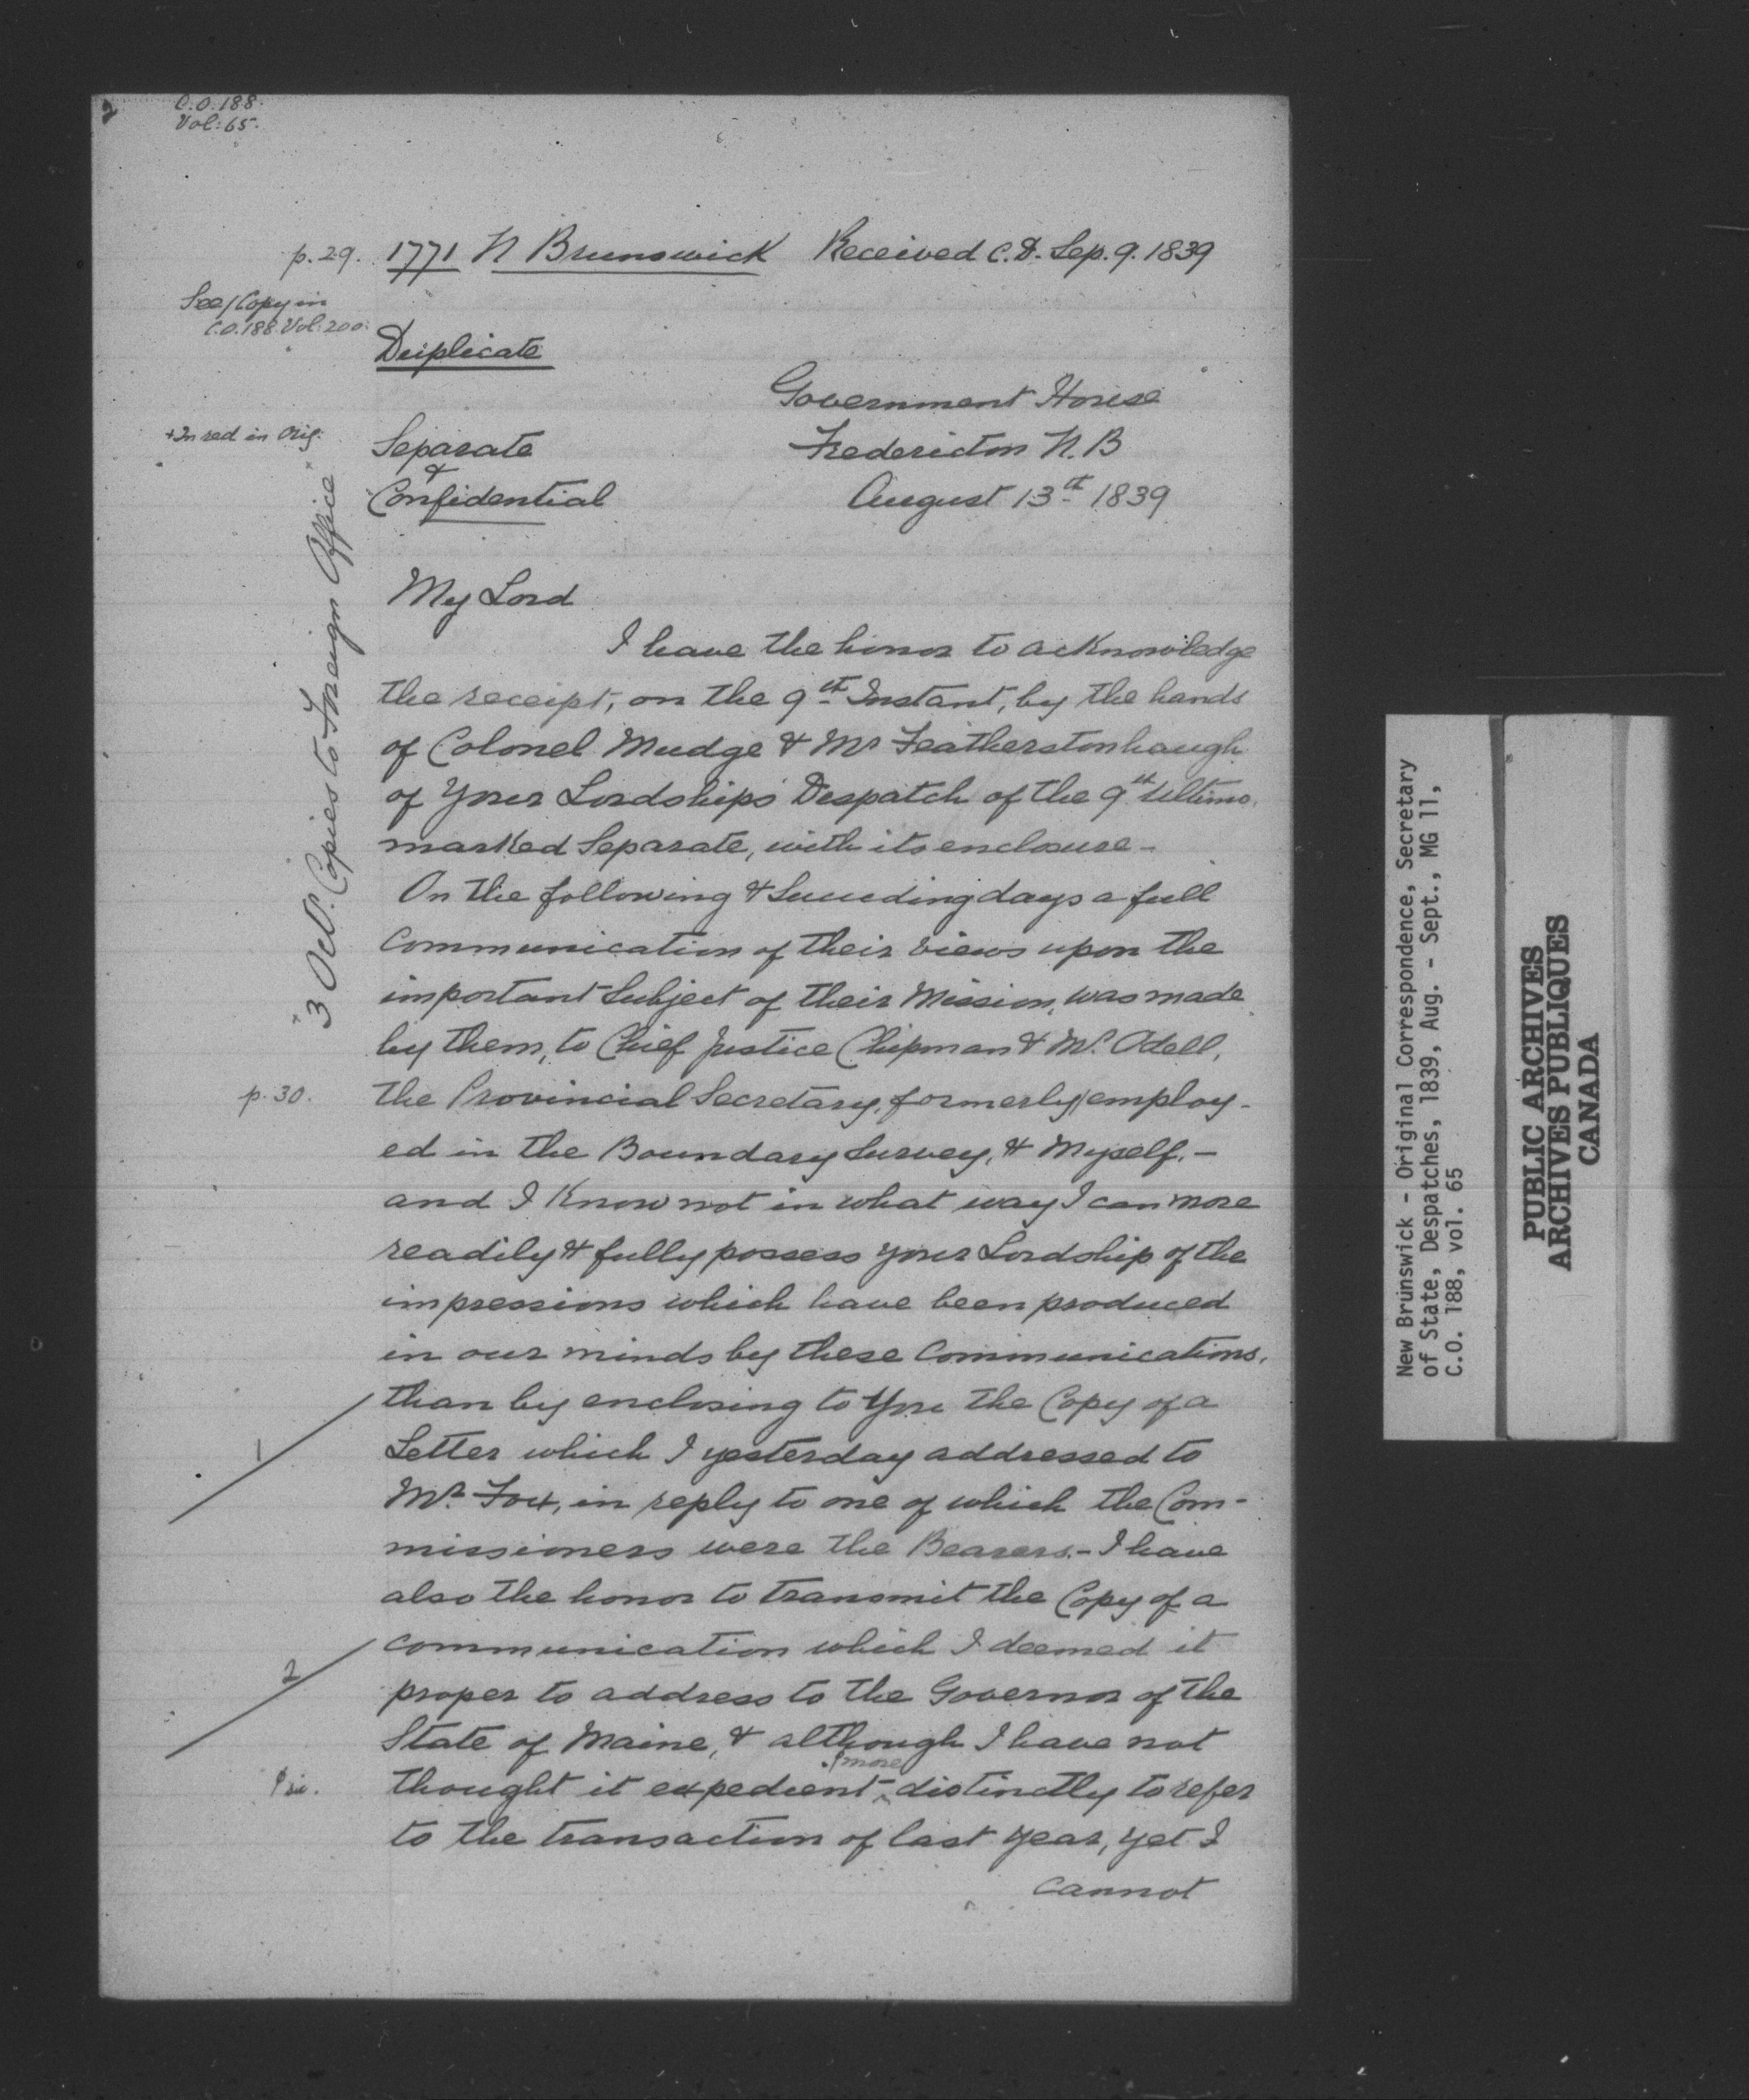 2
C.O. 188.
Vol: 65.
p. 29. 1771 N Brunswick Received C.D. Sep. 9. 1839
See/Copy in
C.O. 188. Vol: 200.
Duplicate
Government House
+In red in Orig:
Separate
Fredericton N.B
&
Confidential
August 13th 1839
"3 Oct. Copies to Foreign Office"
My Lord
I have the honor to acknowledge
the receipt, on the 9th Instant, by the hands
of Colonel Mudge & Mr Featherstonhaugh
of Your Lordships Despatch of the 9th Ultimo.
marked Separate, with its enclosure -
On the following & Succeeding days a full
Communication of their views upon the
important Subject of their Mission, was made
by them, to Chief Justice Chipman & Mr. Odell,
p. 30. the Provincial Secretary, formerly employ-
ed in the Boundary Survey, & Myself. -
and I know not in what way I can more
readily & fully possess your Lordship of the
impressions which have been produced
in our minds by these Communications,
than by enclosing to You the Copy of a
1
Letter which I yesterday addressed to
Mr. Fox, in reply to one of which the Com-
missioners were the Bearers. - I have
also the honor to transmit the Copy of a
communication which I deemed it
2
proper to address to the Governor of the
State of Maine, & although I have not
more
thought it expedient distinctly to refer
to the transaction of last year, yet I
cannot
New Brunswick - Original Correspondence, Secretary
of State, Despatches, 1839, Aug. - Sept., MG 11,
C.O. 188, vol. 65
PUBLIC ARCHIVES
ARCHIVES PUBLIQUES
CANADA